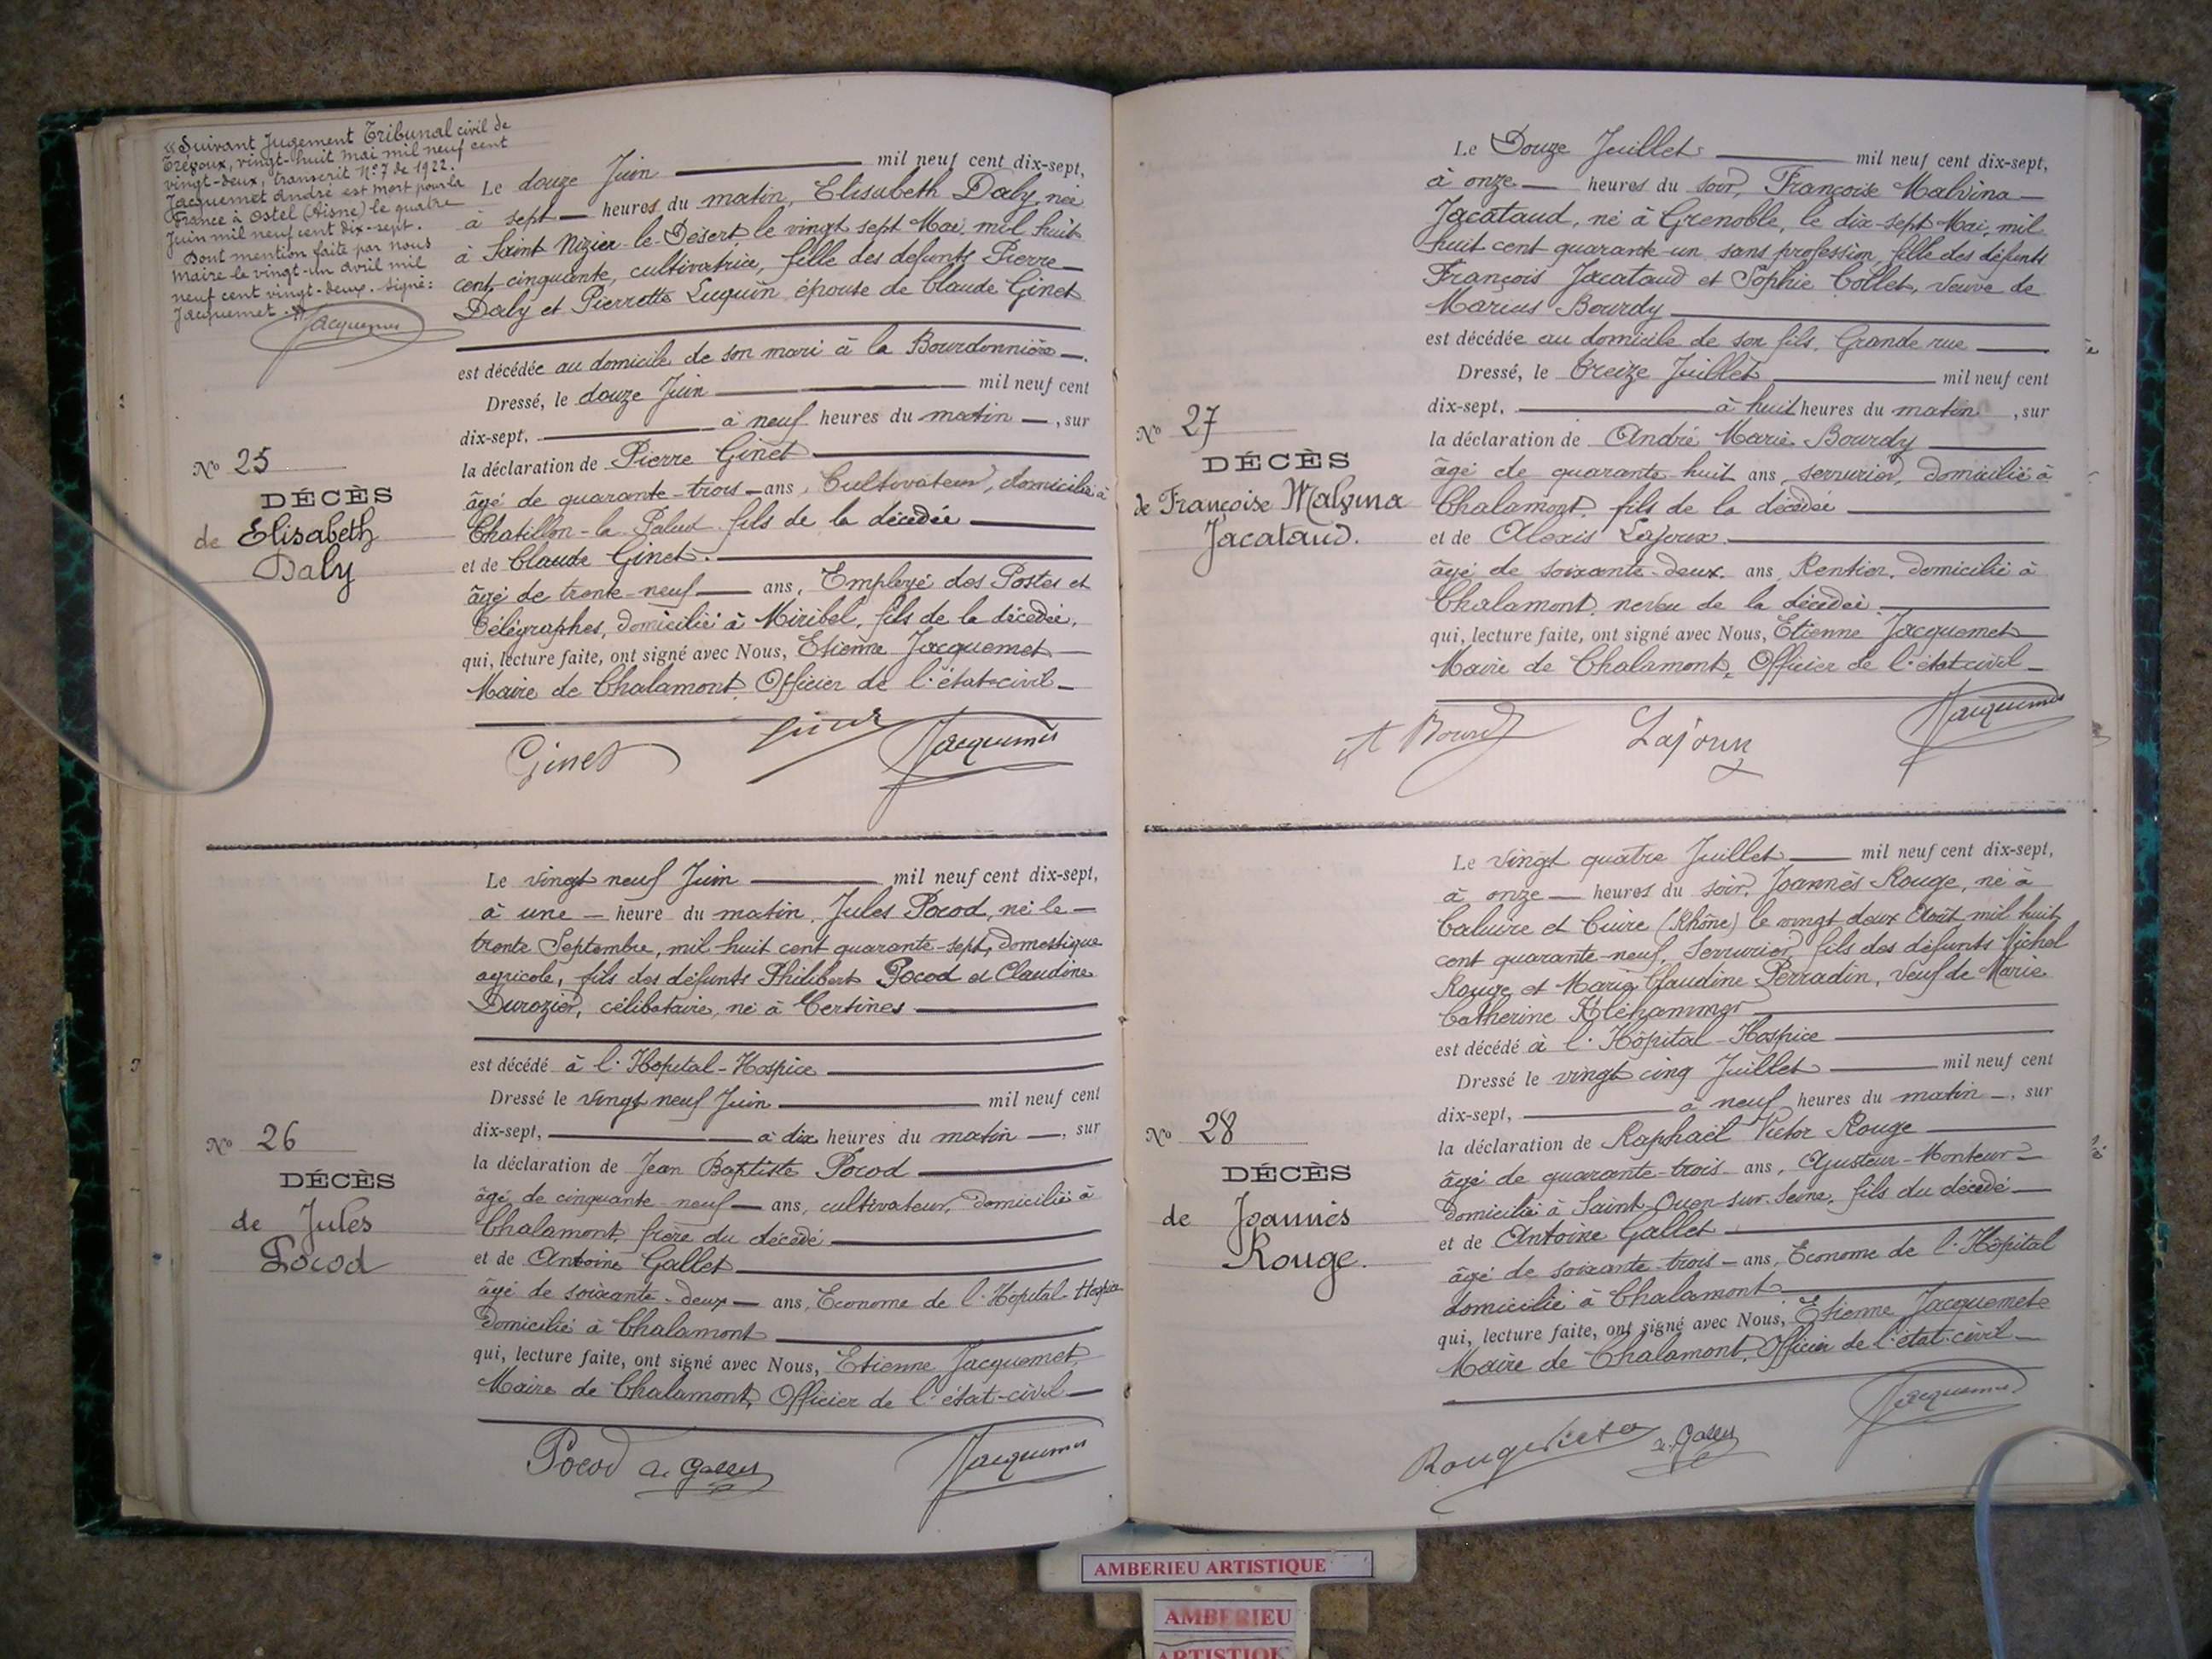 « Suivant Jugement Tribunal civil de
Trévoux, vingt-huit mai mil neuf cent
vingt-deux, transcrit N° 7 de 1922.
Jacquemet André est mort pour la
France à Ostel (Aisne) le quatre
Juin mil neuf cent dix-sept.
Dont mention faite par nous
Maire le vingt-un avril mil
neuf cent vingt-deux. Signé :
Jacquemet. »
Jacquemet
N° 25
DÉCÈS
de Elisabeth
Daly
Le douze Juin mil neuf cent dix-sept,
à sept heures du matin, Elisabeth Daly, née
à Saint Nizier-le-Désert, le vingt sept Mai, mil huit
cent cinquante, cultivatrice, fille des defunts Pierre
Daly et Pierrette Luquin épouse de Claude Ginet
est décédée au domicile de son mari à la Bourdonnière.
Dressé, le douze Juin mil neuf cent
dix-sept, à neuf heures du matin, sur
la déclaration de Pierre Ginet
âgé de quarante-trois ans, Cultivateur, domicilié à
Chatillon-la-Palud fils de la décédée
et de Claude Ginet.
âgé de trente-neuf ans, Employé des Postes et
Télégraphes, domicilié à Miribel, fils de la décédée,
qui, lecture faite, ont signé avec Nous, Etienne Jacquemet
Maire de Chalamont, Officier de l'état-civil
Ginet Ginet Jacquemet
N° 26
DÉCÈS
de Jules
Pocod
Le vingt neuf Juin mil neuf cent dix-sept,
à une heure du matin, Jules Pocod, né le
trente Septembre, mil huit cent quarante-sept, domestique
agricole, fils des défunts Philibert Pocod et Claudine
Durozier, célibataire, né à Certines
est décédé à l'Hopital-Hospice
Dressé le vingt neuf Juin mil neuf cent
dix-sept, à dix heures du matin, sur
la déclaration de Jean Baptiste Pocod
âgé de cinquante-neuf ans, cultivateur, domicilié à
Chalamont, frère du décédé
et de Antoine Gallet
âgé de soixante-deux ans, Econome de l'Hôpital-Hospice
domicilié à Chalamont
qui, lecture faite, ont signé avec Nous, Etienne Jacquemet,
Maire de Chalamont, Officier de l'état-civil
Pocod A. Gallet Jacquemet
N° 27
DÉCÈS
de Françoise Malvina
Jacataud.
Le Douze Juillet mil neuf cent dix-sept,
à onze heures du soir, Françoise Malvina
Jacataud, né à Grenoble, le dix-sept Mai, mil
huit cent quarante-un, sans profession, fille des défunts
François Jacataud et Sophie Collet, veuve de
Marius Bourdy
est décédée au domicile de son fils, Grande rue
Dressé, le Treize Juillet mil neuf cent
dix-sept, à huit heures du matin, sur
la déclaration de André Marie Bourdy
âgé de quarante-huit ans, serrurier, domicilié à
Chalamont, fils de la décédée
et de Alexis Lajoux.
âgé de soixante-deux. ans, Rentier, domicilié à
Chalamont, neveu de la décédée
qui, lecture faite, ont signé avec Nous, Etienne Jacquemet
Maire de Chalamont, Officier de l'état-civil
A Bourdy Lajoux Jacquemet
N° 28
DÉCÈS
de Joannès
Rouge.
Le vingt quatre Juillet mil neuf cent dix-sept,
à onze heures du soir, Joannès Rouge, né à
Caluire et Cuire (Rhône) le vingt deux Août mil huit
cent quarante-neuf, Serrurier, fils des défunts Michel
Rouge et Marie Claudine Perradin, veuf de Marie
Catherine Kléhammer
est décédé à l'Hôpital-Hospice
Dressé le vingt cinq Juillet mil neuf cent
dix-sept, à neuf heures du matin, sur
la déclaration de Raphaël Victor Rouge
âgé de quarante-trois ans, Ajusteur-Monteur
domicilié à Saint Ouen-sur-Seine, fils du décédé
et de Antoine Gallet
âgé de soixante-trois ans, Econome de l'Hôpital
domicilié à Chalamont
qui, lecture faite, ont signé avec Nous, Etienne Jacquemet
Maire de Chalamont, Officier de l'état-civil
Rouge Victor A. Gallet Jacquemet
AMBERIEU ARTISTIQUE
AMBERIEU